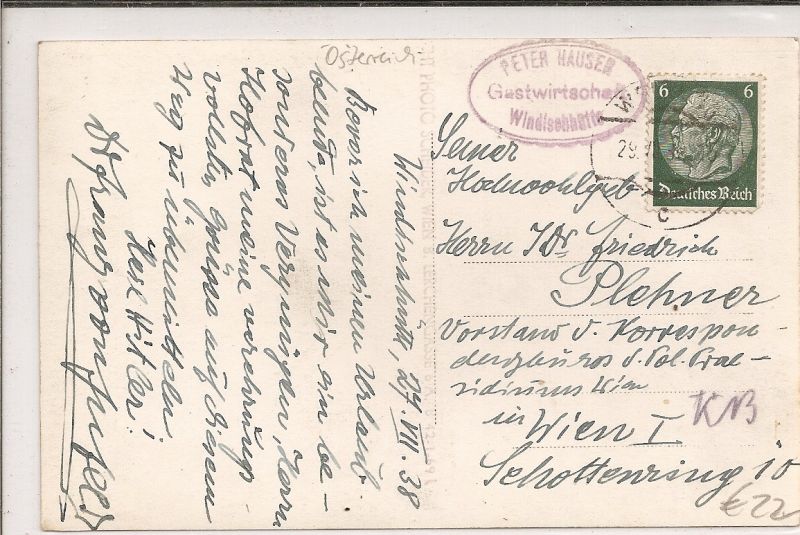 Österreich
PETER HAUSER
Gastwirtschaft
Windischhütte
6 6
Deutsches Reich
29.
c
Windischhütte, 27. VII. 38
Bevor ich meinen Urlaub
beende, ist es mir ein be-
sonderes Vergnügen, Herrn
Hofrat meine verehrungs-
vollsten Grüsse auf diesem
Weg zu übermitteln
Heil Hitler!
Seiner
Hochwohlgeb
Herrn Dr Friedrich
Plehner
Vorstand d. Korrespon-
denzbüros d. Pol. Prae-
sidiums Wien
in Wien I
Schottenring 10
KB
€22